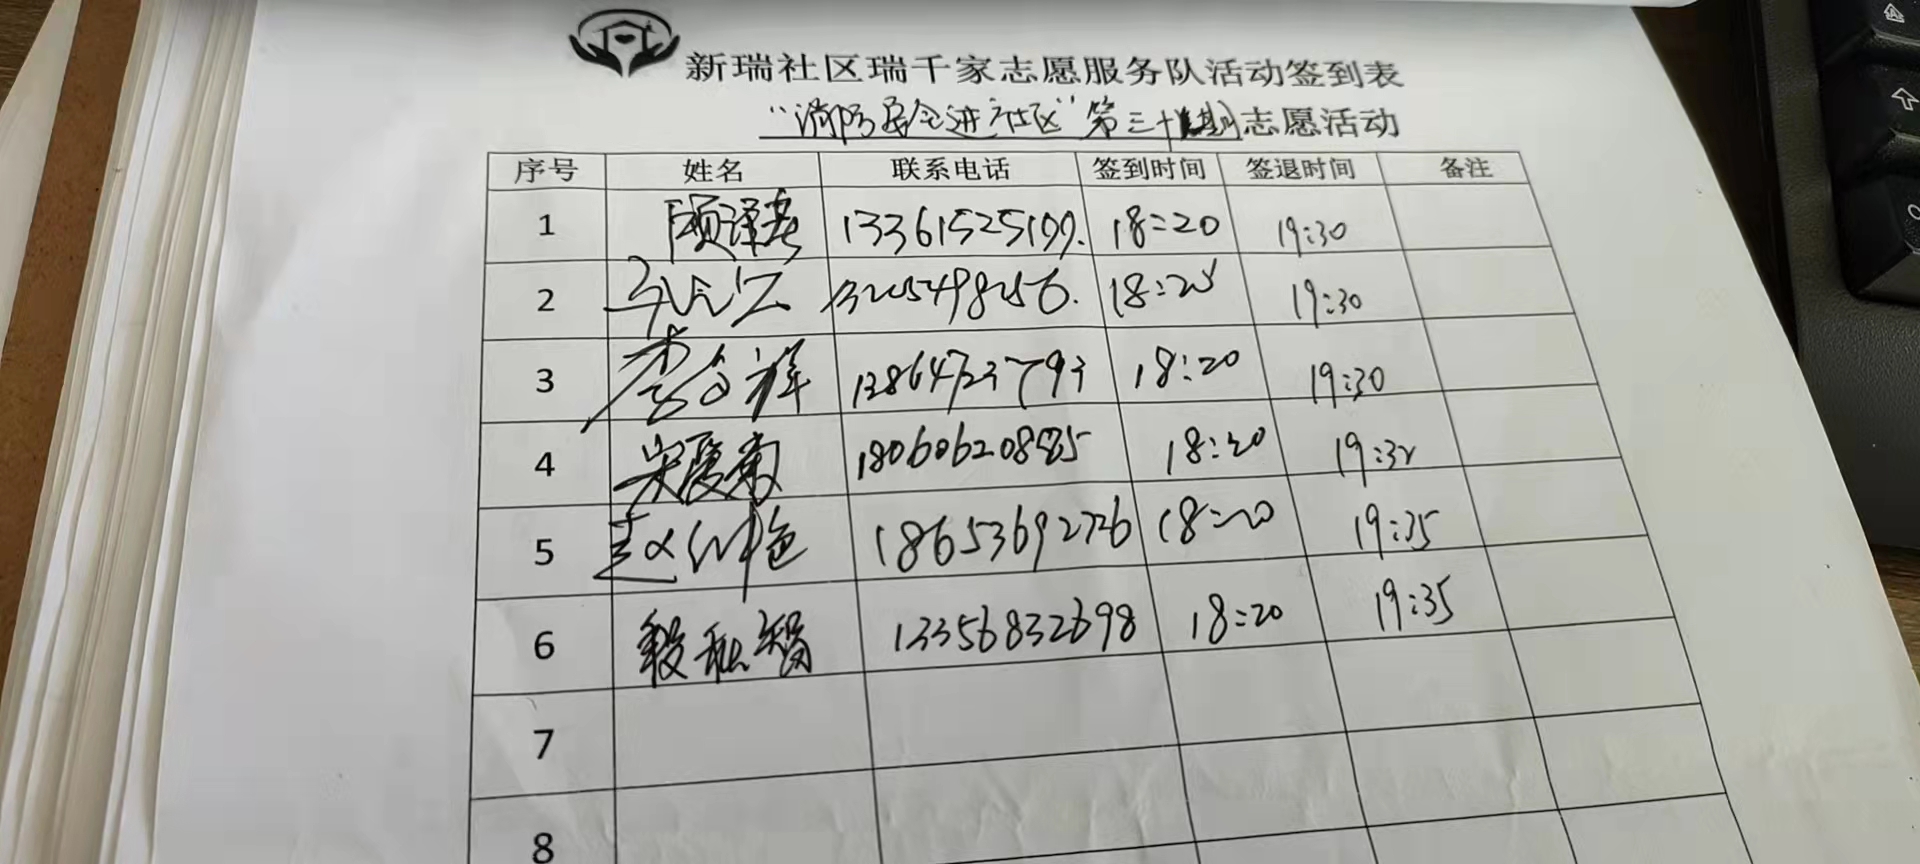 新瑞社区瑞千家志愿服务队活动签到表
“消防安全进社区”第三十期志愿活动
序号 姓名 联系电话 签到时间 签退时间 备注
1 顾泽 13361525199. 18:20 19:30
2 18:25 19:30
3 李合祥 13864723793 18:20 19:30
4 宋爱菊 18:20 19:32
5 赵 18653692726 18:20 19:35
6 13356832698 18:20 19:35
7
8